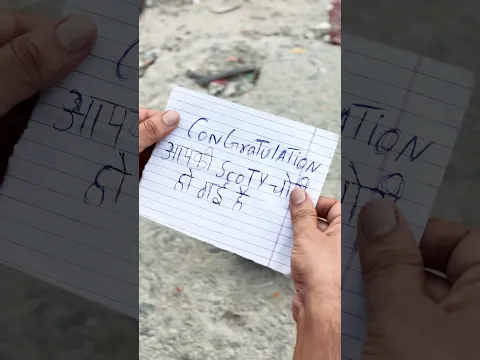 CONGRATULATION
आपकी SCOTY चोरी
हो गई है